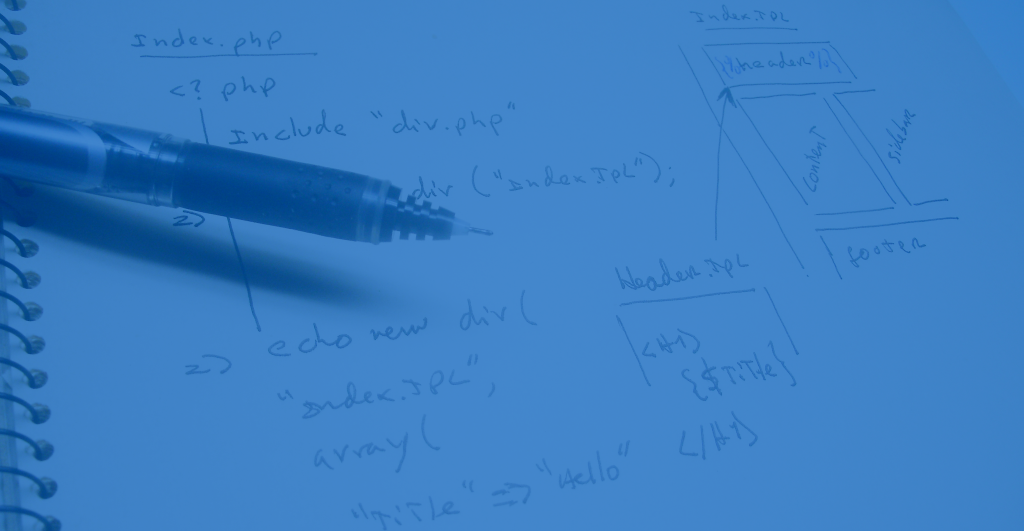 Index.php
<? php
Include "div.php"
div ("Index.TPL");
2)
2) echo new div(
"Index.TPL",
array(
"TiTle" => "Hello"
Index.TPL
{%Header%}
Content
sidebar
footer
Header.TPL
<H1>
{$TiTle}
</H1>